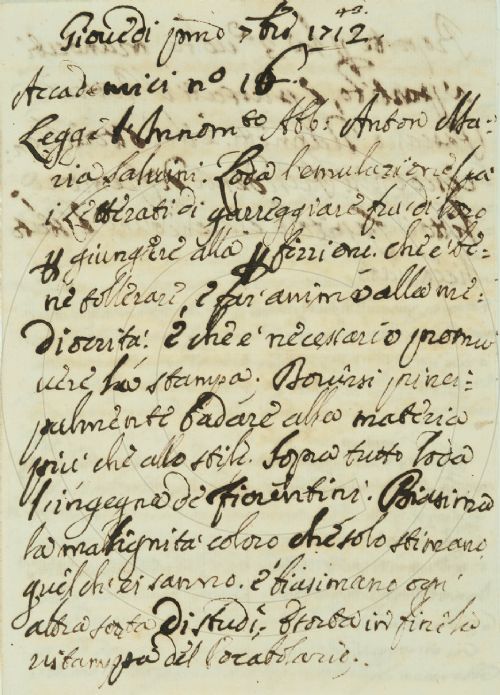 Giovedi pmo 7bre 1712.
Accademici no 16
Legge l'Innomto Abbe Anton Ma-
ria Salvini. Loda l'emulazione fra
i Letterati di gareggiare fra di loro
p giungere alla pfezzione. che è be-
ne tollerare, e far animo alla me-
diocrità: e che e' necessario promu
vere la stampa. Doversi princi-
palmente badare alla materia
piu che allo stile. Sopra tutto loda
l'ingegno de fiorentini. Biasima
la malignita coloro che solo stimano
quel che ei sanno. e biasimano ogni
altra sorta di studi, Esorta in fine la
ristampa del Vocabolario.